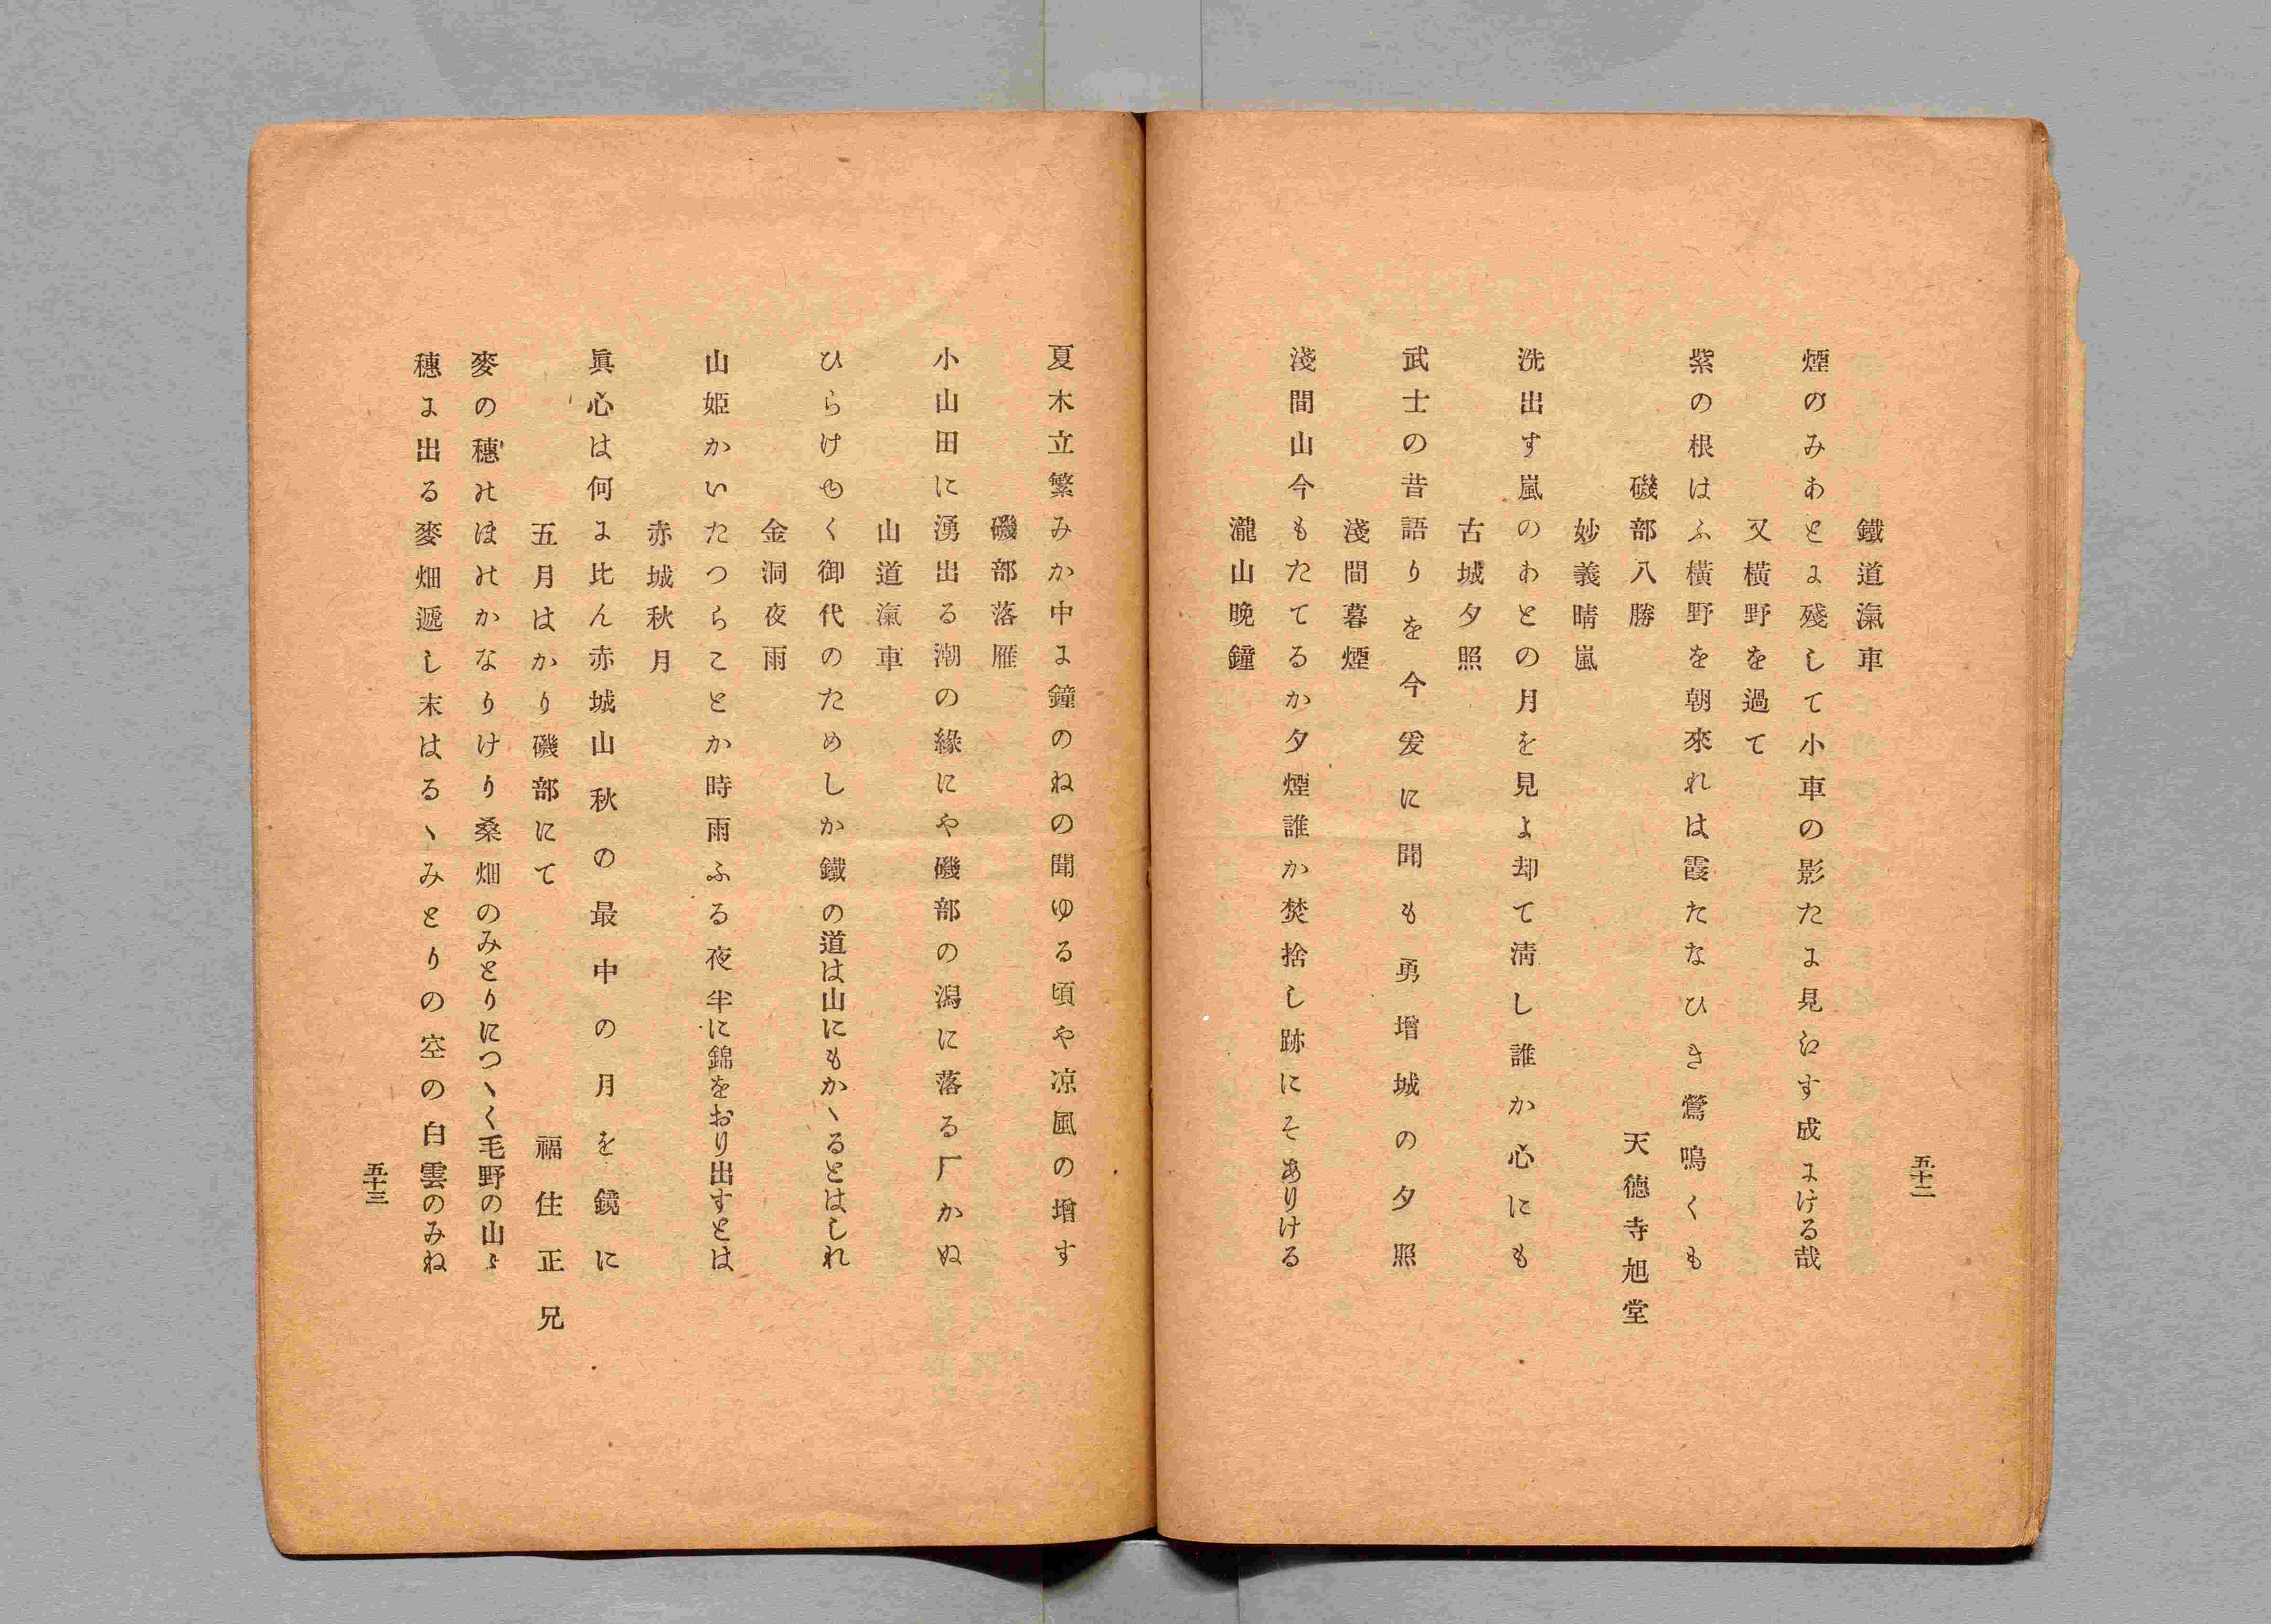 五十二
鐵道滊車
煙のみあとに殘して小車の影たに見江す成にける哉
又橫野を過て
紫の根はふ橫野を朝來れは霞たなひき鶯鳴くも
磯部八勝
天德寺旭堂
妙義晴嵐
洗出す嵐のあとの月を見よ却て淸し誰か心にも
古城夕照
武士の昔語りを今爰に聞も勇增城の夕照
淺間暮煙
淺間山今もたてるか夕煙誰か焚捨し跡にそありける
瀧山晩鐘
夏木立繁みか中に鐘のねの聞ゆる頃や凉風の增す
磯部落雁
小山田に湧出る潮の緣にや磯部の潟に落る厂かぬ
山道滊車
ひらけゆく御代のためしか鐵の道は山にもかヽるとはしれ
金洞夜雨
山姫かいたつらことか時雨ふる夜半に錦をおり出すとは
赤城秋月
眞心は何に比ん赤城山秋の最中の月を鏡に
五月はかり磯部にて
福住正兄
麥の穗のほのかなりけり桑畑のみとりにつヽく毛野の山々
穗に出る麥畑遞し末はるヽみとりの空の白雲のみね
五十三